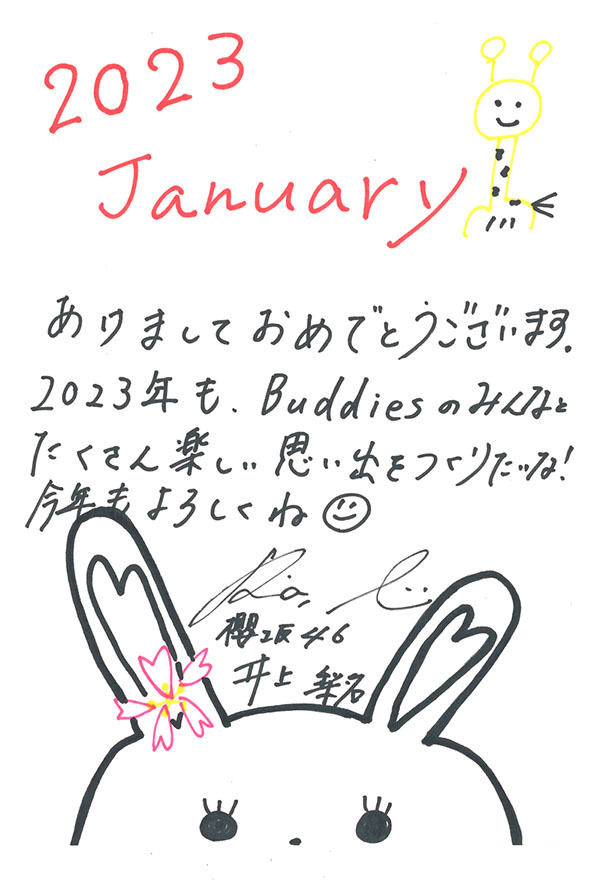 2023
January
あけましておめでとうございます。
2023年も、Buddiesのみんなと
たくさん楽しい思い出をつくりたいな!
今年もよろしくね
櫻坂46
井上 梨名